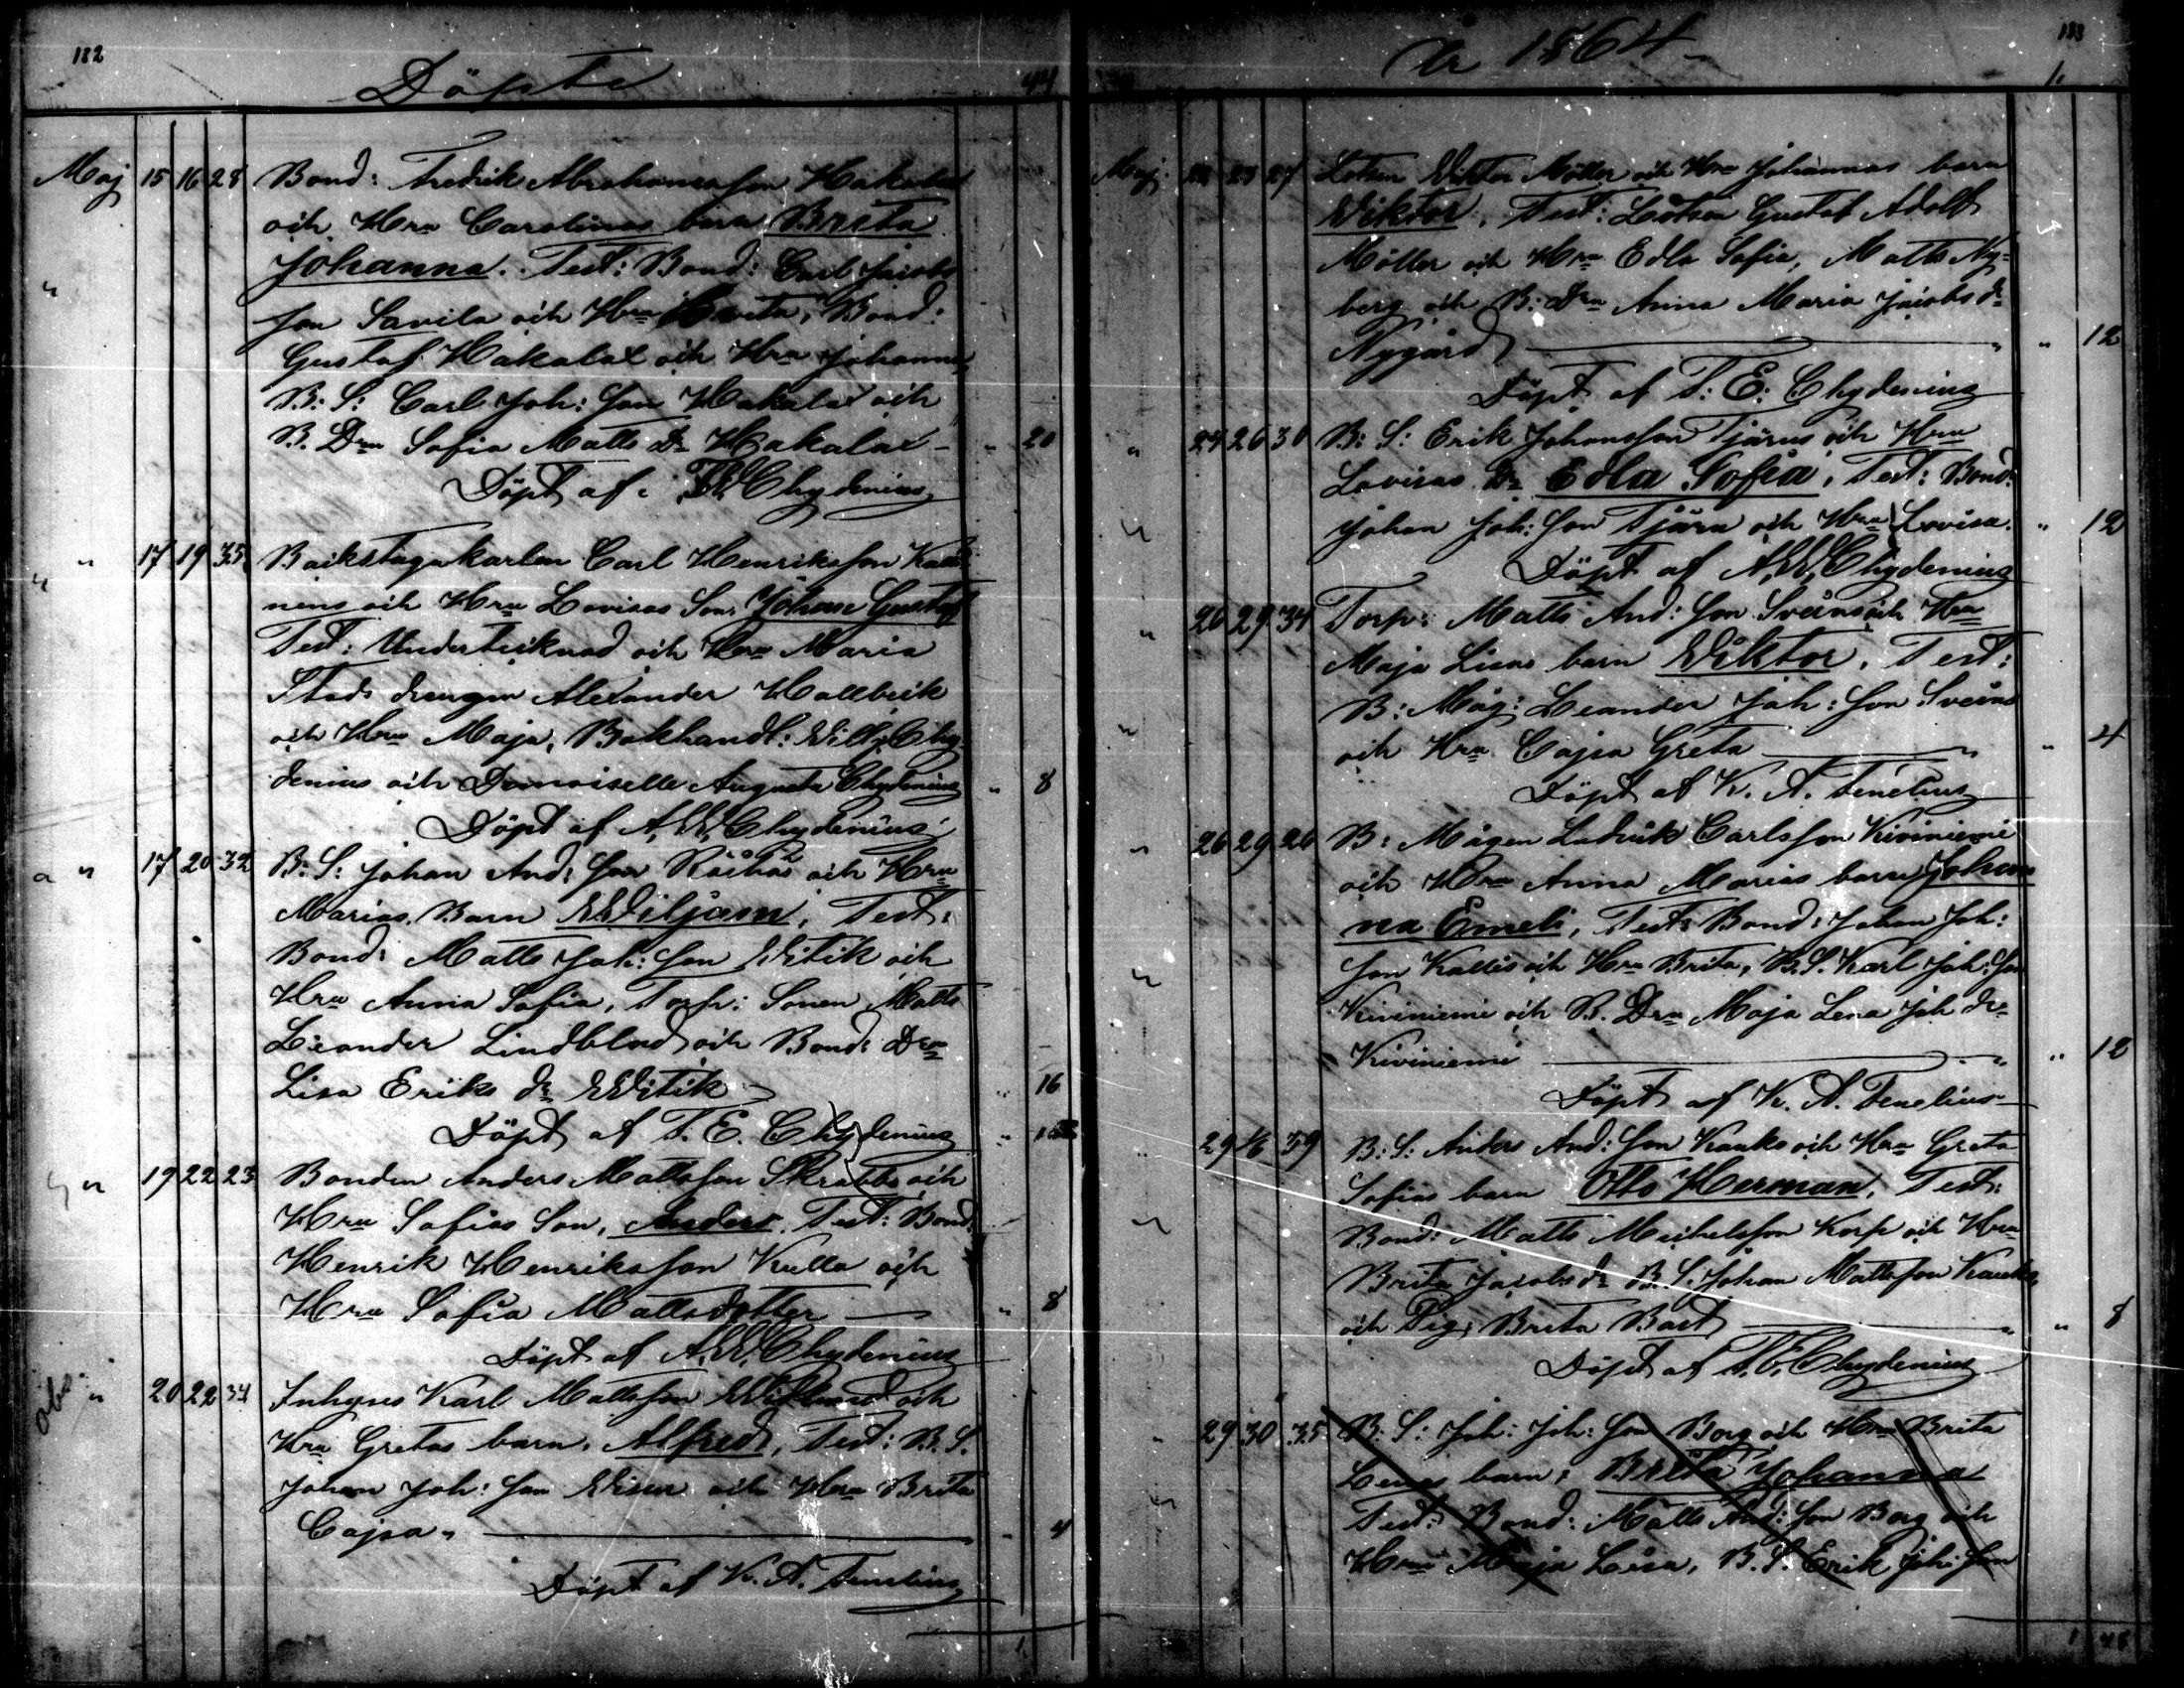 182
Döpte
44
Maj 15 16 28 Bond: Fredrik Abrahamsson Hakalax
och Hru Carolinas barn Brita
Johanna. Test: Bond: Carl Jacobs
son Savila och Hru Greta, Bond:
Gustaf Hakalax och Hru Johanna,
B: S: Carl Joh: son Hakalax och
B. Drn Sofia Matts Dr Hakalax - " 20
Döpt af: Chydenius
" 17 19 35 Carl Henriksson
nens och Hru Lovisas Son, Johan Gustaf
Test: Undertecknad och Hru Maria
Stads drengen Alexander Hallbeck
och Hru Maja, Bokhandl: Wilh: Chy-
denius och Demoiselle Augusta Chydenius " 8
Döpt af A. W. Chydenius
" 17 20 32 B: S: Johan And: son och Hru
Marias Barn Wiljam, Test:
Bond: Matts Joh: son Witik och
Hru Anna Sofia, Torp: Sonen Matts
Leander Lindblad och Bond: Drn
Lisa Eriks dr Witik " 16
Döpt af F. E. Chydenius
" 19 22 23 Bonden Anders Mattsson Skrabb och
Hru Sofias Son, Anders. Test: Bond:
Henrik Henriksson Kulla och
Hru Sofia Mattsdotter — " 8
Döpt af A. W. Chydenius
obs. " 20 22 34 Inhyses Karl Mattsson och
Hru Gretas barn, Alfred, Test: B. S.
Johan Joh: son och Hru Brita
Cajsa " — " 4
Döpt af K. A. Tenelius
1
År 1864
183
1.
Maj 23 27 Lotsen Viktor Möller och Hru Johannas barn
Wiktor, Test: Lotsen Gustaf Adolf
Möller och Hru Edla Sofia, Matts Ny-
berg och B: Drn Anna Maria Jacobs dr
Nygård — " 12
Döpt af F. E. Chydenius
" 24 26 30 B: S: Erik Johansson Tjärus och Hru
Lovisas Dr Edla Sofia, Test: Bond:
Johan Joh: son Tjäru och Hru Lovisa. " 12
Döpt af A. W. Chydenius
" 26 29 34 Torp: Matts And: son Sveins och Hru
Maja Lisas barn Wiktor, Test:
B: Måg: Leander Joh: son Sveins
och Hru Cajsa Greta — " 4
Döpt af K. A. Tenelius
" 26 29 26 B: Mågen Ludvik Carlsson Kiviniemi
och Hru Anna Marias barn Johan
na Emeli, Test: Bond: Johan Joh:
son Kallis och Hru Brita, B. S. Karl Joh: son
Kiviniemi och B. Drn Maja Lena Joh dr
Kiviniemi — " 12
Döpt af K. A. Tenelius
29 1/6 39 B: S: Anders And: son Kauko och Hru Greta
Sofias barn Otto Herman, Test:
Bond: Matts Michelsson Korp och Hru
Brita Jacobs dr B. S. Johan Mattsson Kauko
och Pig: Brita Bast — " 8
Döpt af F. E. Chydenius
" 29 30 35 B: S: Joh: Joh: son Borg och Hru Brita
Lenas barn: Brita Johanna
Test: Bond: Matts And: son Borg och
Hru Maja Lisa, B. S. Erik Joh: son
1 48